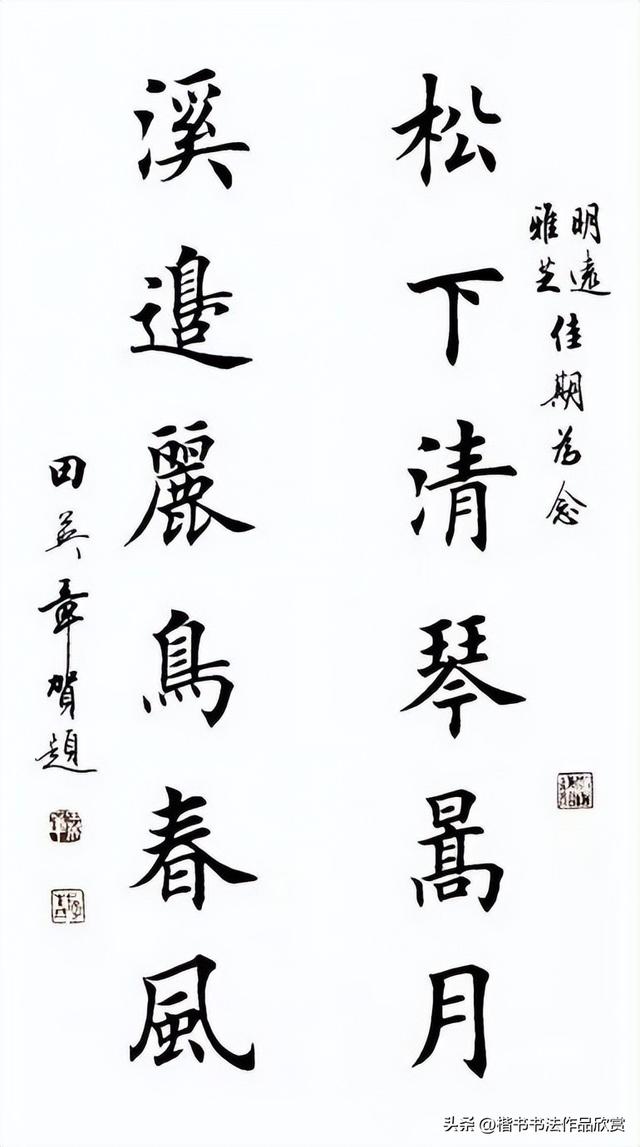 明遠
雅芝
佳期為念
松下清琴暠月
溪邊麗鳥春風
田英章賀題
头条 @楷书书法作品欣赏